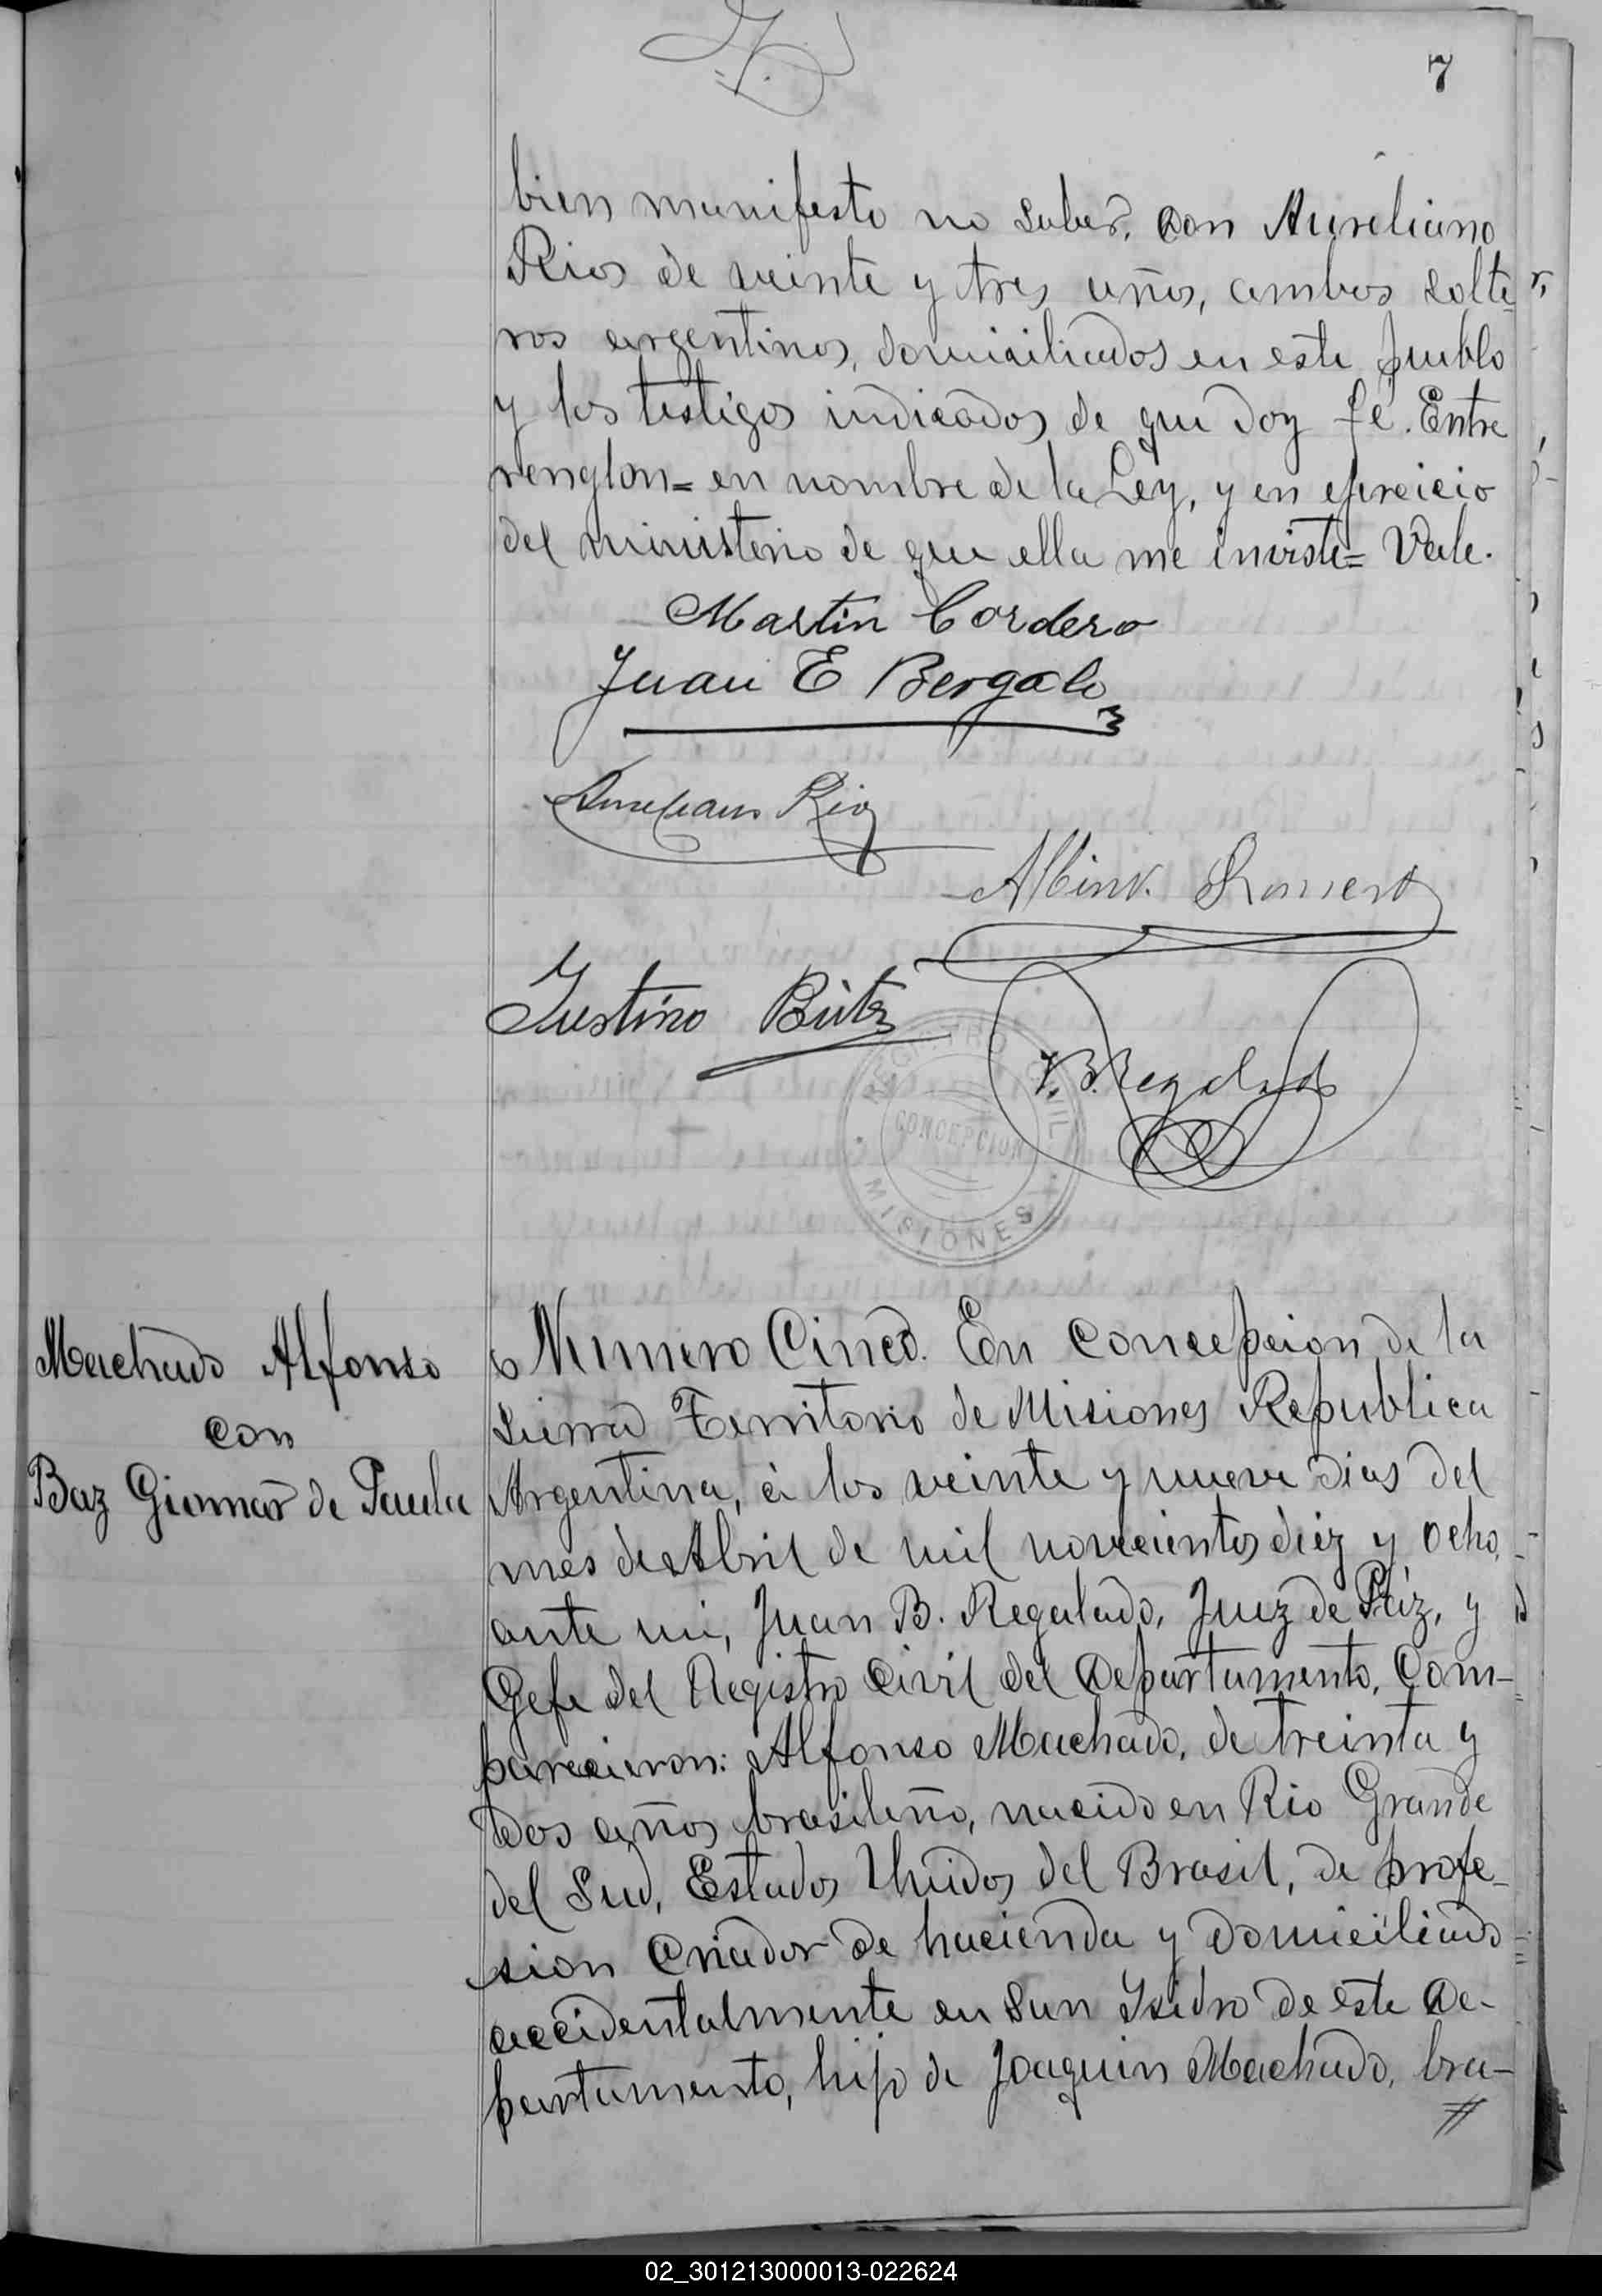 7
bien manifesto no saber, con Aureliano
Rios de veinte y tres años, ambos solte
ros argentinos, domiciliados en este pueblo
y los testigos indicados de que doy fé. Entre
renglon= en nombre de la Ley, y en ejercicio
del ministerio de que ella me inviste= Vale.
Martin Cordero
Juan E Bergalo
Aureliano Rios
Albino Romero
Justino
J. B. Regalado
REGISTRO CIVIL
CONCEPCION
MISIONES
Machado Alfonso
con
Baz Giomar de Paula
Numero Cinco. En Concepcion de la
Sierra Territorio de Misiones Republica
Argentina, á los veinte y nueve dias del
mes de Abril de mil novecientos diez y ocho,
ante mi, Juan B. Regalado, Juez de Páz, y
Gefe del Registro Civil del Departamento, Com-
parecieron: Alfonso Machado, de treinta y
dos años brasileño, nacido en Rio Grande
del Sud, Estados Unidos del Brasil, de profe-
sion Criador de hacienda y domiciliado
accidentalmente en San Ysidro de este De-
partamento, hijo de Joaquin Machado, bra-
02_301213000013-022624